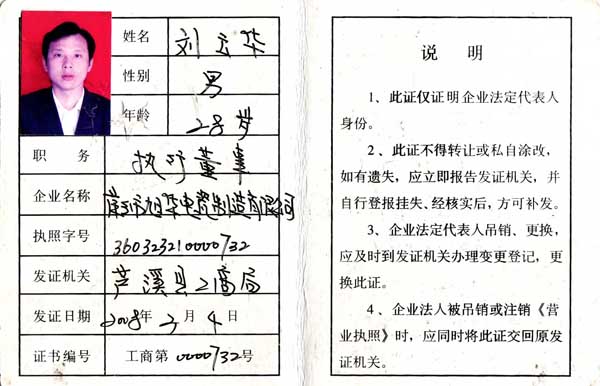 姓名 刘云华
性别 男
年龄 28岁
职 务 执行董事
企业名称 萍乡市旭华电瓷制造有限公司
执照字号 360323210000732
发证机关 芦溪县工商局
发证日期 2008年3月4日
证书编号 工商第0000732号
说 明
1、此证仅证明企业法定代表人
身份。
2、此证不得转让或私自涂改,
如有遗失,应立即报告发证机关,并
自行登报挂失、经核实后,方可补发。
3、企业法定代表人吊销、更换,
应及时到发证机关办理变更登记,更
换此证。
4、企业法人被吊销或注销《营
业执照》时,应同时将此证交回原发
证机关。